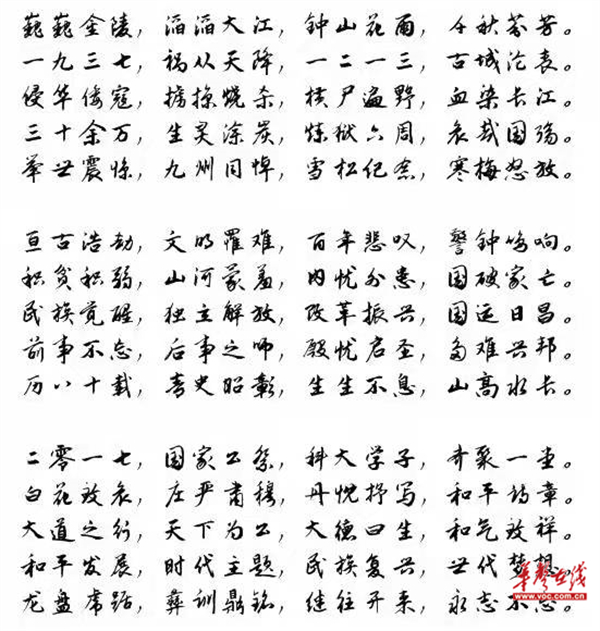 巍巍金陵,滔滔大江,钟山花雨,千秋芬芳。
一九三七,祸从天降,一二一三,古城沦丧。
侵华倭寇,掳掠烧杀,横尸遍野,血染长江。
三十余万,生灵涂炭,炼狱六周,哀哉国殇。
举世震惊,九州同悼,雪松纪念,寒梅怒放。
亘古浩劫,文明罹难,百年悲叹,警钟鸣响。
积贫积弱,山河蒙羞,内忧外患,国破家亡。
民族觉醒,独立解放,改革振兴,国运日昌。
前事不忘,后事之师,殷忧启圣,多难兴邦。
历八十载,青史昭彰,生生不息,山高水长。
二零一七,国家公祭,科大学子,齐聚一堂。
白花致哀,庄严肃穆,丹忱抒写,和平诗章。
大道之行,天下为公,大德曰生,和气致祥。
和平发展,时代主题,民族复兴,世代梦想。
龙盘虎踞,彝训鼎铭,继往开来,永志不忘。
华声在线
www.voc.com.cn